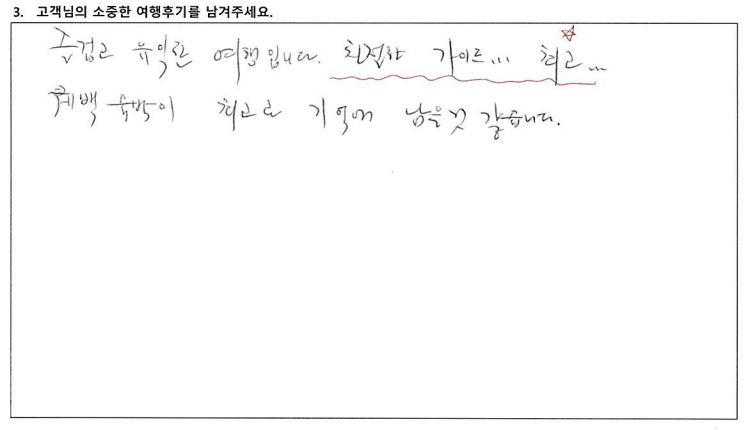 3. 고객님의 소중한 여행후기를 남겨주세요.
즐겁고 유익한 여행입니다. 친절한 가이드... 최고...
숙박이 최고로 기억에 남을것 같습니다.